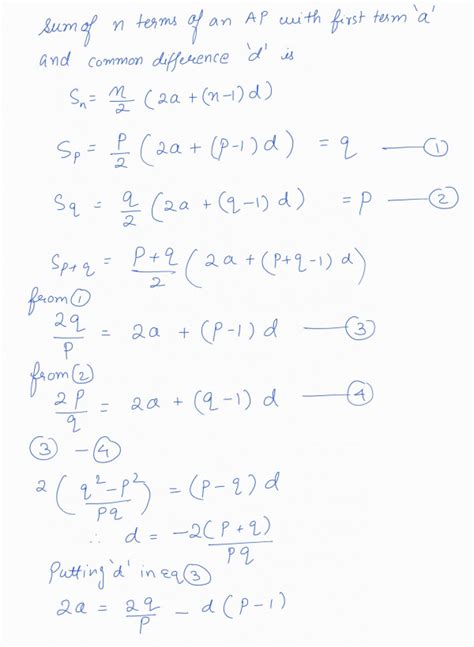 Sum of n terms of an AP with first term 'a'
and common difference 'd' is
Sₙ = n/2 (2a + (n-1) d)
Sₚ = p/2 (2a + (p-1) d) = q —— ①
S_q = q/2 (2a + (q-1) d) = p —— ②
S_p+q = p+q/2 (2a + (p+q-1) d)
from ①
2q/p = 2a + (p-1) d —— ③
from ②
2p/q = 2a + (q-1) d —— ④
③ - ④
2 (q²-p²/pq) = (p-q) d
∴ d = -2(p+q)/pq
Putting 'd' in eq ③
2a = 2q/p - d (p-1)